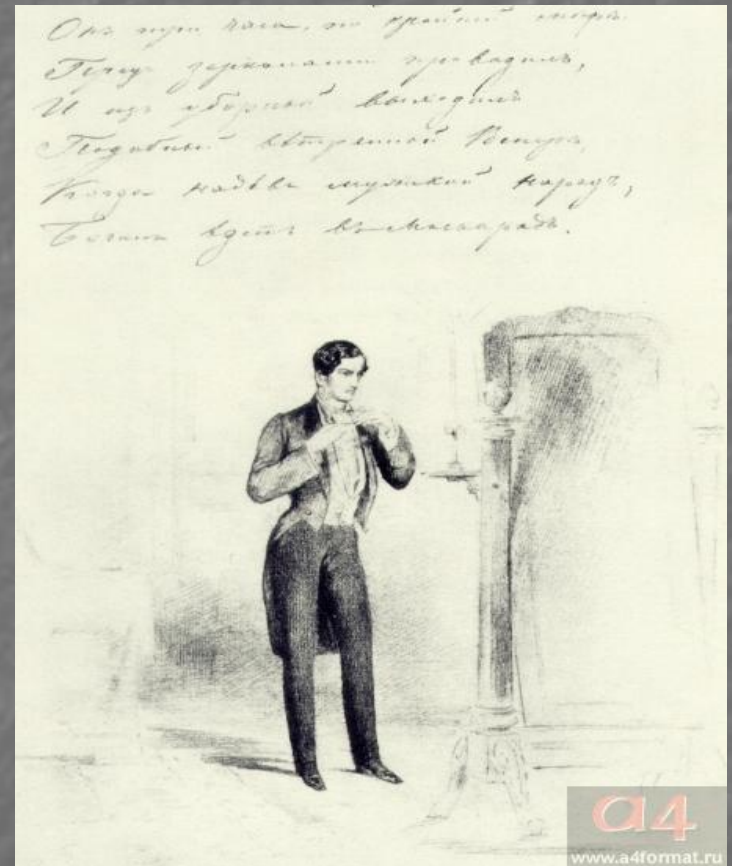 Онъ три часа, по крайней мѣрѣ
Предъ зеркалами проводилъ,
И изъ уборной выходилъ
Подобный вѣтренной Венерѣ,
Когда надѣвъ мужской нарядъ,
Богиня ѣдетъ въ маскарадъ.
a4
www.a4format.ru